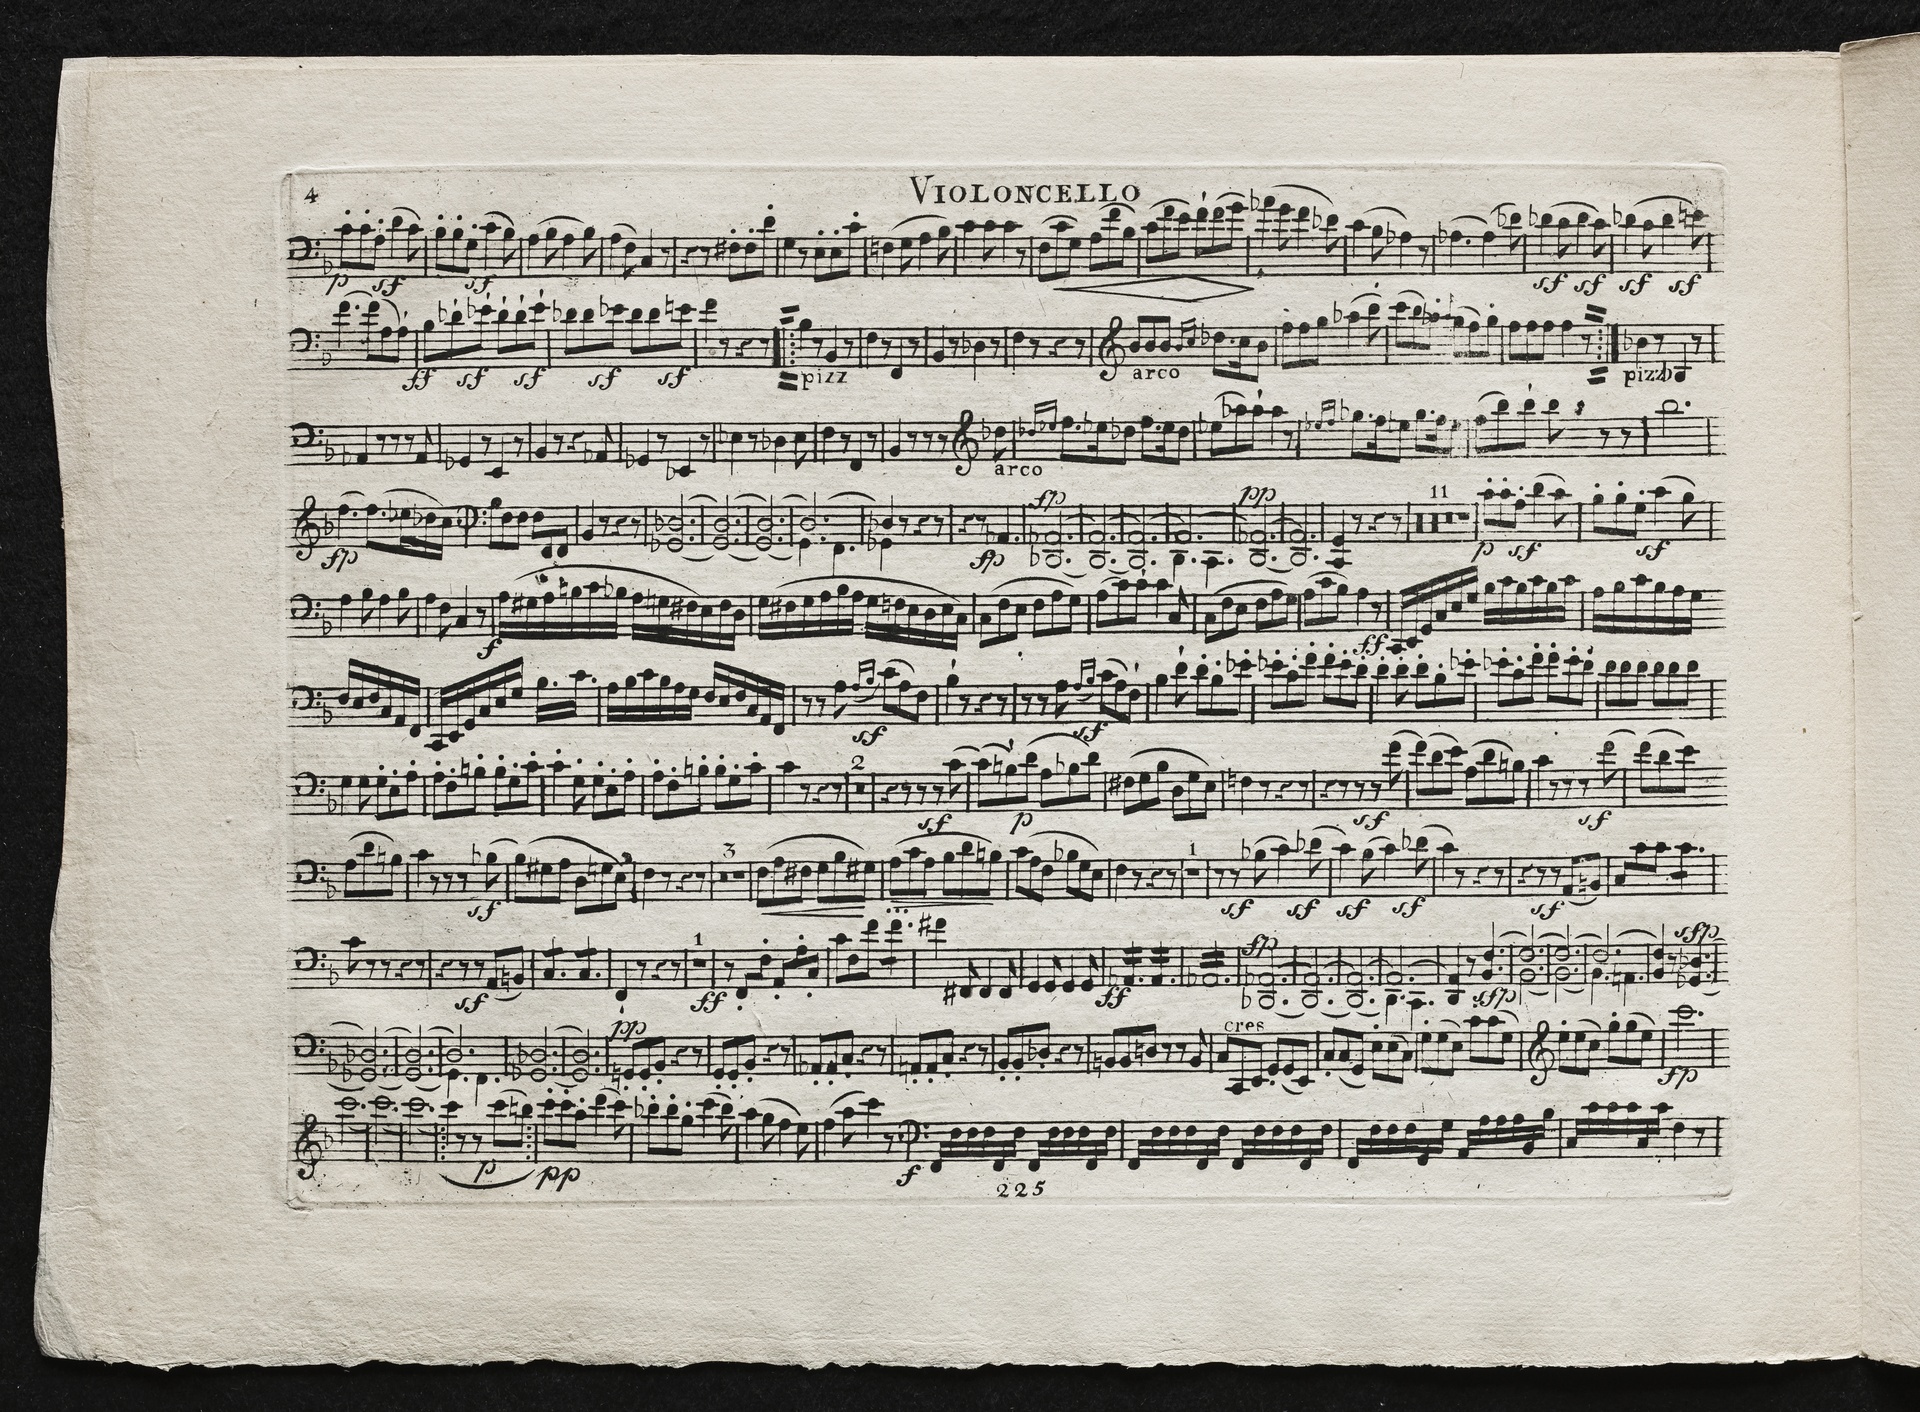 4
VIOLONCELLO
p sf sf sf sf sf sf
ff sf sf sf sf pizz arco pizz
arco
fp fp fp pp 11 p sf sf
f ff
sf sf
2 sf p sf sf
sf 3 1 sf sf sf sf sf
sf 1 ff ff fp sfp sfp
pp cres fp
p pp f
225